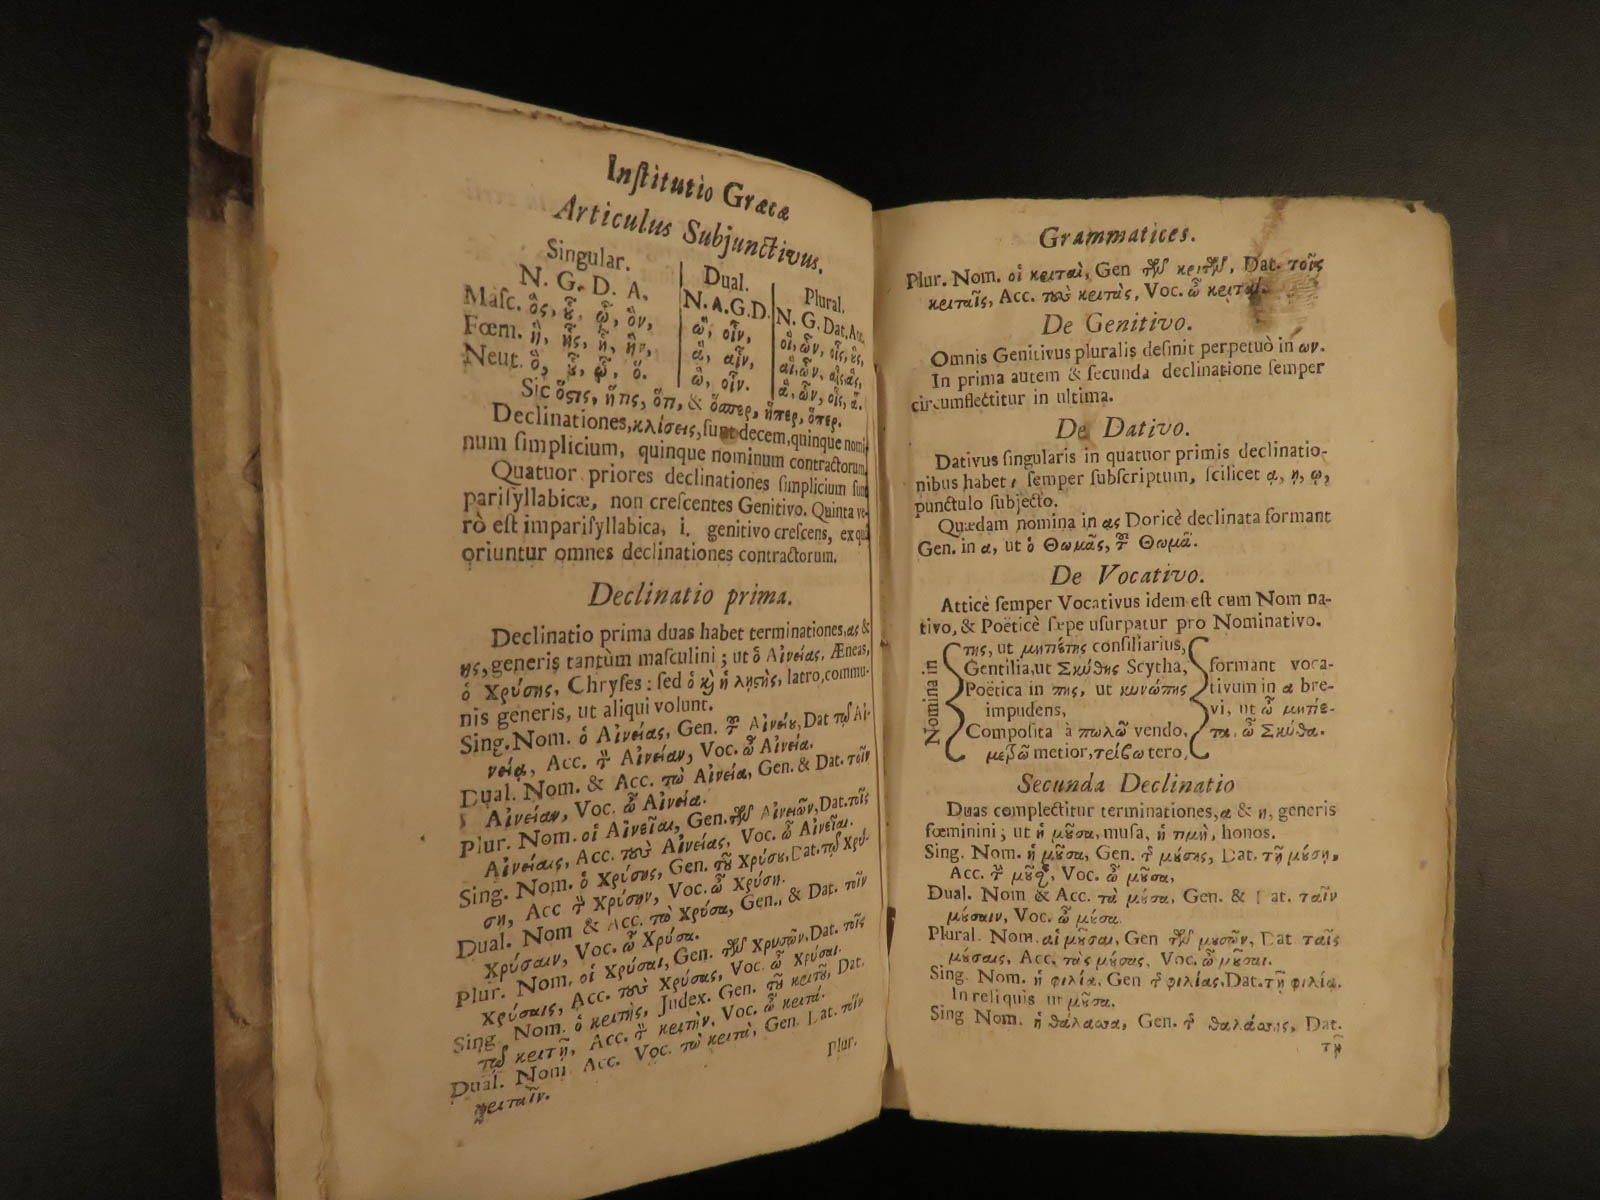 Inſtitutio Græcæ
Articulus Subjunctivus.
Singular. | Dual. | Plural.
N. G. D. A. | N. A. G. D. | N. G. Dat. Acc.
Maſc. ὃς, ȣ̔͂, ᾧ, ὃν, | ὣ, οἷν, | οἳ, ὧν, οἷς, ȣ̔̀ς,
Fœm. ἣ, ἧς, ᾗ, ἣν, | ἃ, αἷν, | αἳ, ὧν, αἷς, ἃς,
Neut. ὃ, ȣ̔͂, ᾧ, ὃ. | ὣ, οἷν. | ἃ, ὧν, οἷς, ἃ.
Sic ὅϛις, ἥτις, ὅτι, & ὅσπερ, ἥπερ, ὅπερ.
Declinationes, κλίσεις, ſunt decem, quinque nomi-
num ſimplicium, quinque nominum contractorum.
Quatuor priores declinationes ſimplicium ſunt
pariſyllabicæ, non creſcentes Genitivo. Quinta ve-
rò eſt impariſyllabica, i. genitivo creſcens, ex qua
oriuntur omnes declinationes contractorum.
Declinatio prima.
Declinatio prima duas habet terminationes, ας &
ης, generis tantùm maſculini ; ut ὁ Αἰνείας, Æneas,
ὁ Χρύσης, Chryſes : ſed ὁ κ̀ ἡ λῃϛὴς, latro, commu-
nis generis, ut aliqui volunt.
Sing. Nom. ὁ Αἰνείας, Gen. τȣ͂ Αἰνείȣ, Dat τῷ Αἰ-
νείᾳ, Acc. τ̀ Αἰνείαν, Voc. ὦ Αἰνεία.
Dual. Nom. & Acc. τὼ Αἰνεία, Gen. & Dat. τοῖν
Αἰνείαιν, Voc. ὦ Αἰνεία.
Plur. Nom. οἱ Αἰνεῖαι, Gen. τῶν Αἰνειῶν, Dat. τοῖς
Αἰνείαις, Acc. τοὺς Αἰνείας, Voc. ὦ Αἰνεῖαι.
Sing. Nom. ὁ Χρύσης, Gen. τȣ͂ Χρύσȣ, Dat. τῷ Χρύ-
σῃ, Acc τ̀ Χρύσην, Voc. ὦ Χρύση.
Dual. Nom & Acc. τὼ Χρύσα, Gen., & Dat. τοῖν
Χρύσαιν, Voc. ὦ Χρύσα.
Plur. Nom. οἱ Χρύσαι, Gen. τῶν Χρυσῶν, Dat. τοῖς
Χρύσαις, Acc. τοὺς Χρύσας, Voc. ὦ Χρύσαι.
Sing. Nom. ὁ κριτὴς, Judex. Gen. τȣ͂ κριτȣ͂, Dat.
τῷ κριτῇ, Acc. τ̀ κριτὴν, Voc. ὦ κριτά.
Dual. Nom Acc. Voc. τὼ κριτὰ, Gen. Dat. τοῖν
κριταῖν.
Plur.
Grammatices.
Plur. Nom. οἱ κριταὶ, Gen τῶν κριτῶν, Dat. τοῖς
κριταῖς, Acc. τοὺς κριτὰς, Voc. ὦ κριταί.
De Genitivo.
Omnis Genitivus pluralis deſinit perpetuò in ων.
In prima autem & ſecunda declinatione ſemper
circumflectitur in ultima.
De Dativo.
Dativus ſingularis in quatuor primis declinatio-
nibus habet ι ſemper ſubſcriptum, ſcilicet ᾳ, ῃ, ῳ,
punctulo ſubjecto.
Quædam nomina in ας Doricè declinata formant
Gen. in α, ut ὁ Θωμᾶς, τȣ͂ Θωμᾶ.
De Vocativo.
Atticè ſemper Vocativus idem eſt cum Nom na-
tivo, & Poëticè ſæpe uſurpatur pro Nominativo.
Nomina in
της, ut μητιέτης conſiliarius,
Gentilia, ut Σκύθης Scytha,
Poëtica in πης, ut κυνώπης
impudens,
Compoſita à πωλῶ vendo,
μετρῶ metior, τρίβω tero,
formant voca-
tivum in α bre-
vi, ut ὦ μητιέ-
τα, ὦ Σκύθα.
Secunda Declinatio
Duas complectitur terminationes, α & η, generis
fœminini ; ut ἡ μȣ͂σα, muſa, ἡ τιμὴ, honos.
Sing. Nom. ἡ μȣ͂σα, Gen. τ͂ μȣ́σης, Dat. τῇ μȣ́σῃ,
Acc. τ̀ μȣ͂σαν, Voc. ὦ μȣ͂σα,
Dual. Nom & Acc. τὰ μȣ́σα, Gen. & Dat. ταῖν
μȣ́σαιν, Voc. ὦ μȣ́σα.
Plural. Nom. αἱ μȣ͂σαι, Gen τῶν μȣσῶν, Dat ταῖς
μȣ́σαις, Acc. τὰς μȣ́σας, Voc. ὦ μȣ͂σαι.
Sing. Nom. ἡ φιλία, Gen τ͂ φιλίας, Dat. τῇ φιλίᾳ.
In reliquis ut μȣ͂σα.
Sing Nom. ἡ θάλασσα, Gen. τ͂ θαλάσσης, Dat.
τῇ